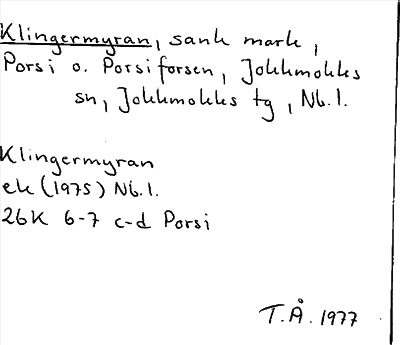 Klingermyran, sank mark,
Porsi o. Porsiforsen, Jokkmokks
sn, Jokkmokks tg, Nb.l.
Klingermyran
ek (1975) Nb.l.
26K 6-7 c-d Porsi
T.Å. 1977